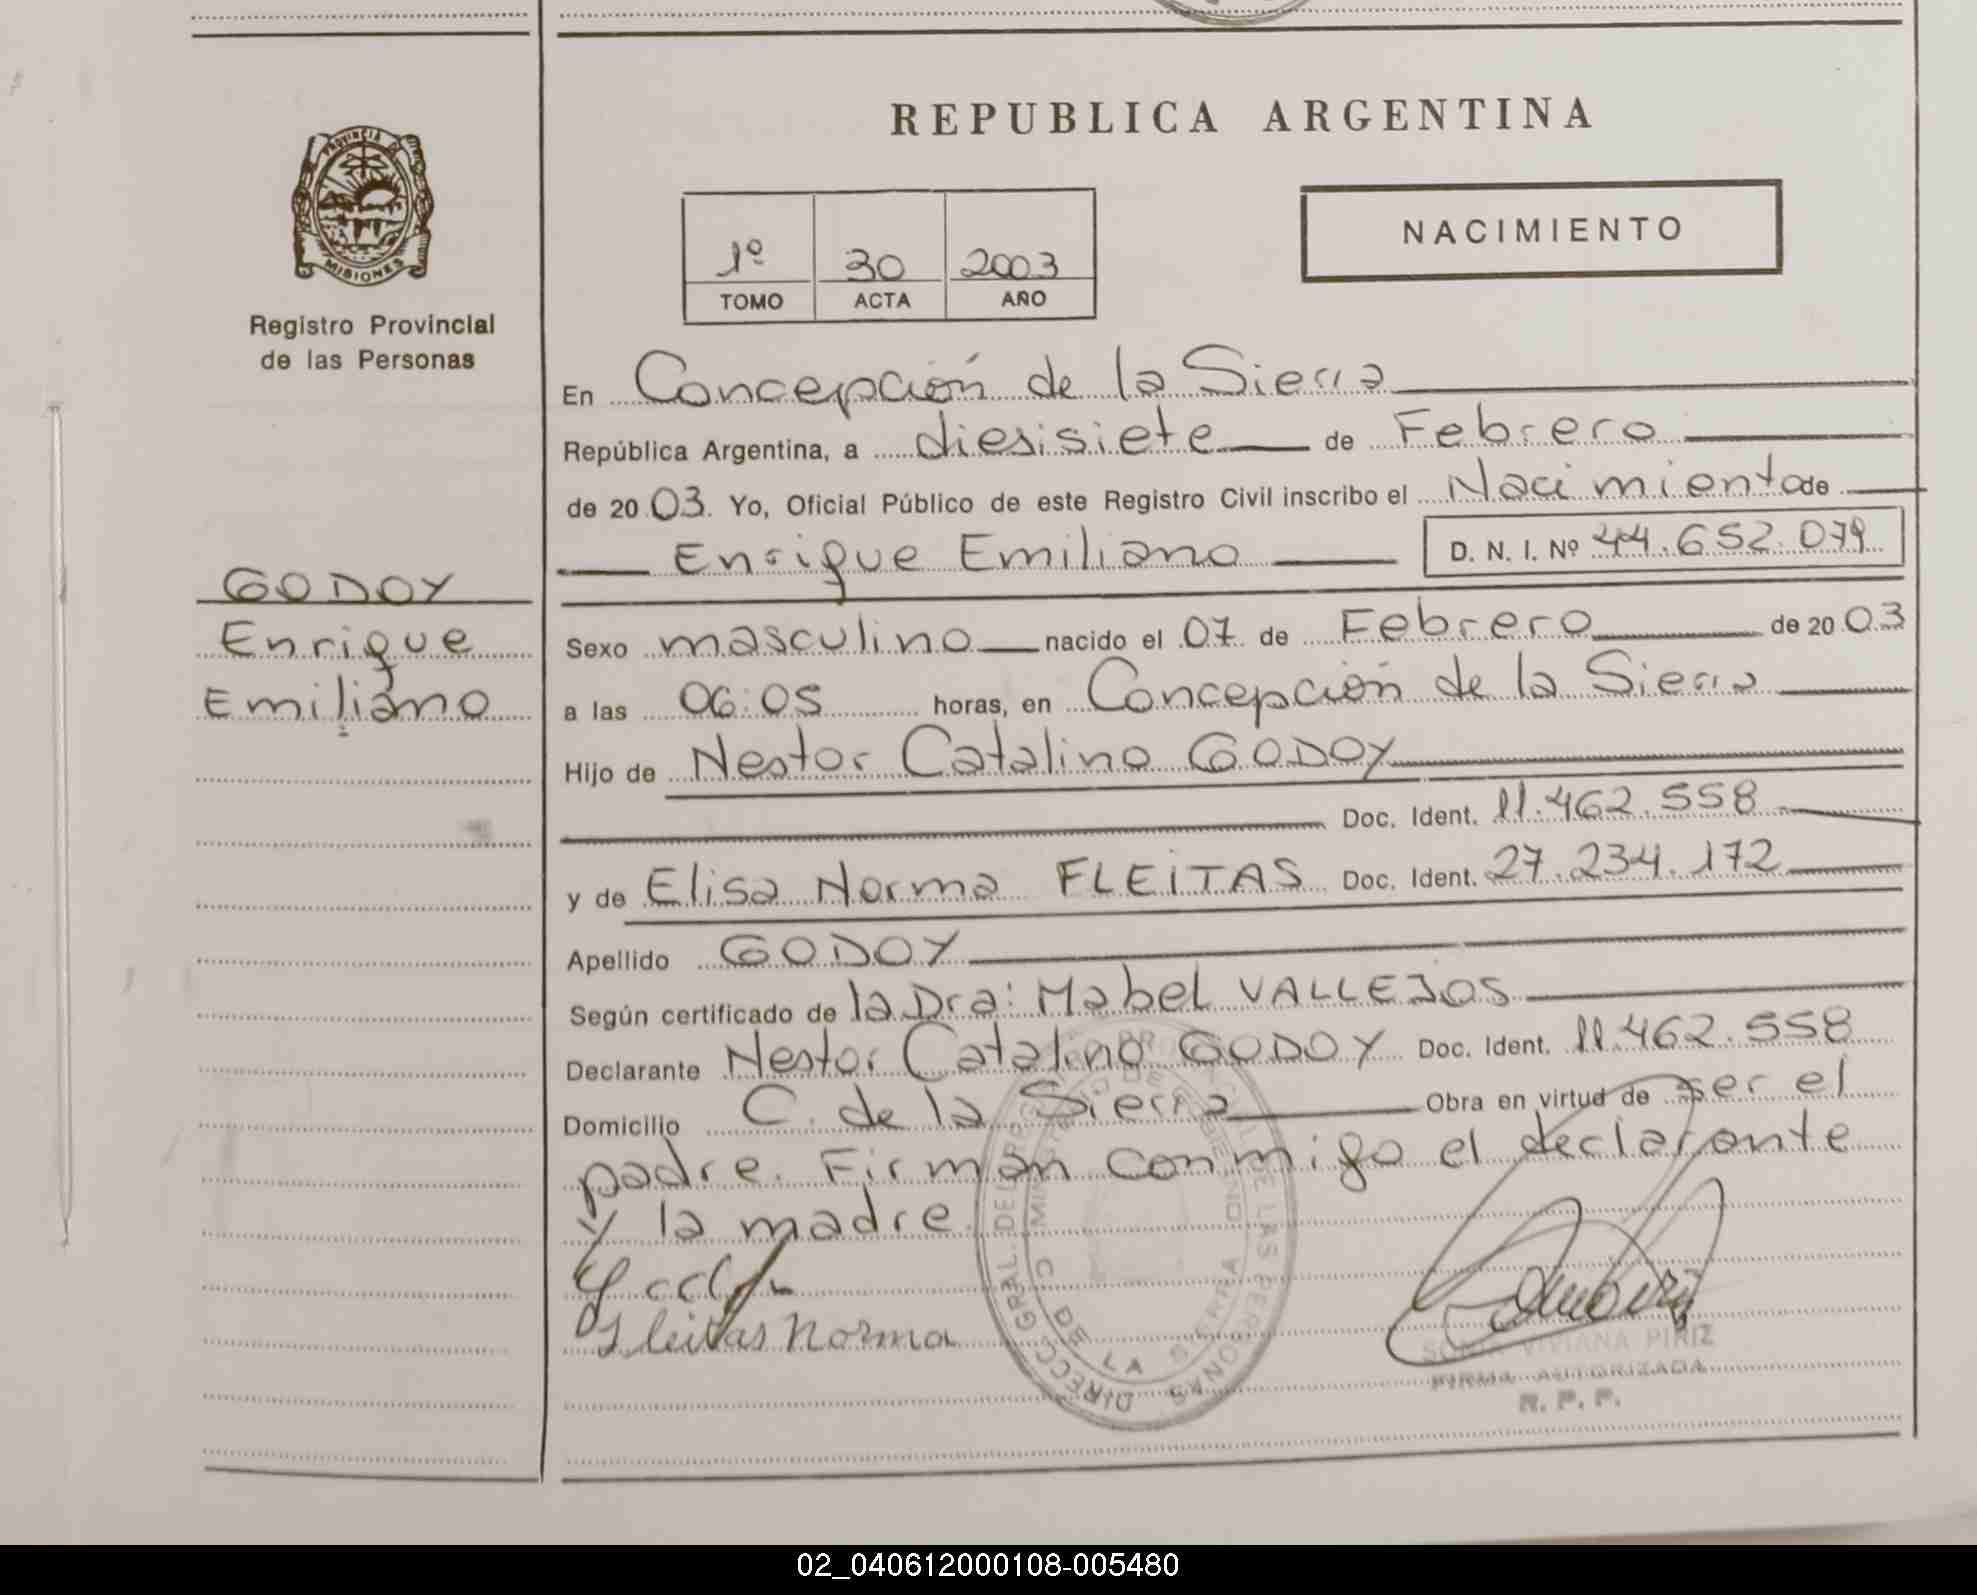 REPUBLICA ARGENTINA
PROVINCIA DE
MISIONES
Registro Provincial
de las Personas
1º 30 2003
TOMO ACTA AÑO
NACIMIENTO
GODOY
Enrique
Emiliano
En Concepción de la Sierra
República Argentina, a diesisiete de Febrero
de 2003. Yo, Oficial Público de este Registro Civil inscribo el Nacimiento de
Enrique Emiliano D. N. I. Nº 44.652.079
Sexo masculino nacido el 07 de Febrero de 2003
a las 06:05 horas, en Concepción de la Sierra
Hijo de Nestor Catalino GODOY
Doc. Ident. 11.462.558
y de Elisa Norma FLEITAS Doc. Ident. 27.234.172
Apellido GODOY
Según certificado de la Dra: Mabel VALLEJOS
Declarante Nestor Catalino GODOY Doc. Ident. 11.462.558
Domicilio C. de la Sierra Obra en virtud de ser el
padre. Firman conmigo el declarante
y la madre.
Fleitas Norma
DIRECC. GRAL. DEL REG. PROV. DE LAS PERSONAS
MINISTERIO DE GOBIERNO
C. DE LA SIERRA
SONIA VIVIANA PIRIZ
FIRMA AUTORIZADA
R. P. P.
02_040612000108-005480